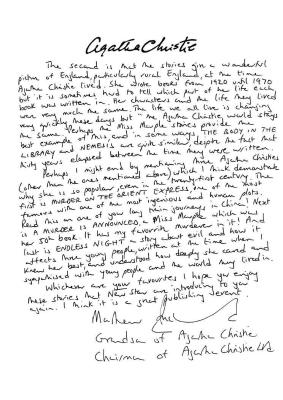 Agatha Christie
The second is that the stories give a wonderful
picture of England, particularly rural England, at the time
Agatha Christie lived. She wrote books from 1920 until 1970
but it is sometimes hard to tell which part of her life each
book was written in. Her characters and the life they lived
were very much the same. The life we all live is changing
very quickly these days but the Agatha Christie world stays
the same. Perhaps the Miss Marple stories provide the
best example of this, and in some ways THE BODY IN THE
LIBRARY and NEMESIS are quite similar despite the fact that
thirty years elapsed between the time they were written.
Perhaps I might end by mentioning three Agatha Christies
(other than the ones mentioned above) which I think demonstrate
why she is so popular even in the twenty-first century. The
first is MURDER ON THE ORIENT EXPRESS, one of the most
famous with one of the most ingenious and human plots.
Read this on one of your long train journeys in China! Next
A MURDER IS ANNOUNCED, a Miss Marple which was
her 50th book. It has my favourite murderer in it! And
last is ENDLESS NIGHT a story about evil and how it
affects three young people, written at the time when I
knew her best, and understood how deeply she cared and
sympathised with young people and the world they lived in.
Whichever are your favourites I hope you enjoy
these stories that New Star are introducing to you
again. I think it is a great publishing event.
Mathew
Grandson of Agatha Christie
Chairman of Agatha Christie Ltd